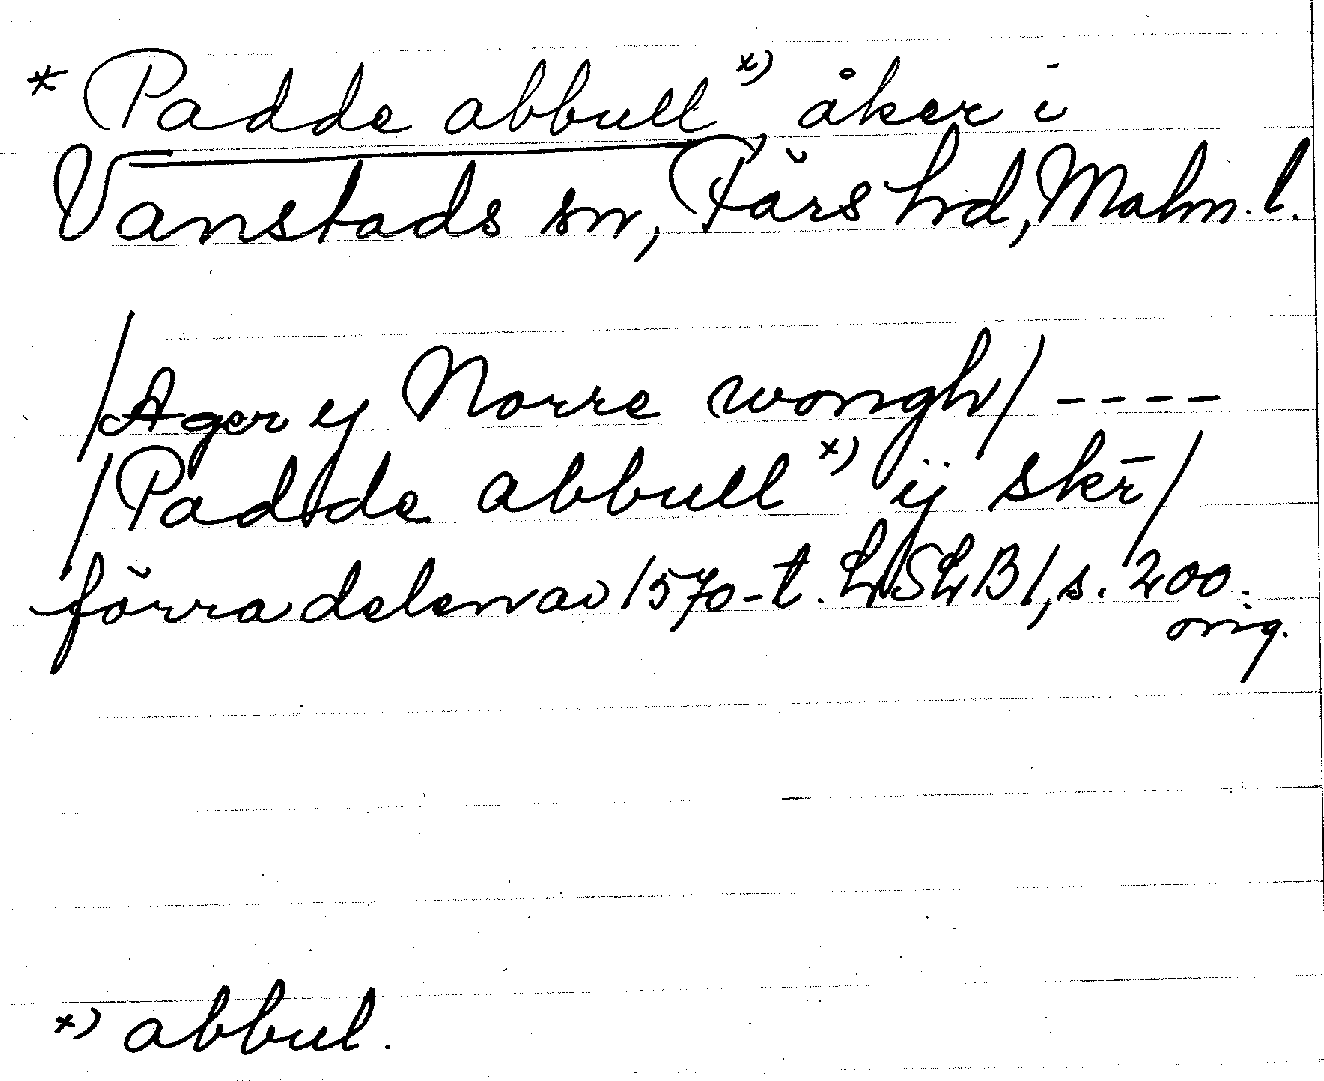 * Padde abbull x), åker i
Vanstads sn, Färs hrd, Malm. l.
/Ager y Norre wongh/ ----
/Padde abbull x) ij skr̄/
förra delen av 1570-t. LSLB 1, s. 200.
orig.
x) abbul.